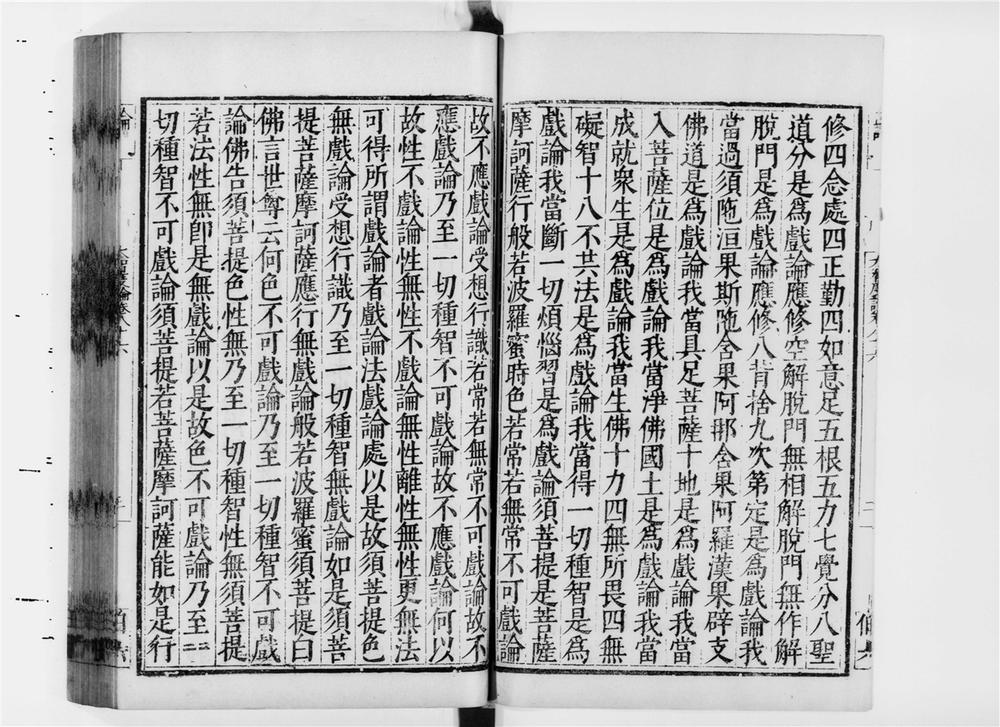 修四念處四正勤四如意足五根五力七覺分八聖
道分是爲戲論應修空解脫門無相解脫門無作解
脫門是爲戲論應修八背捨九次第定是爲戲論我
當過須陁洹果斯陁含果阿那含果阿羅漢果辟支
佛道是爲戲論我當具足菩薩十地是爲戲論我當
入菩薩位是爲戲論我當淨佛國土是爲戲論我當
成就衆生是爲戲論我當生佛十力四無所畏四無
礙智十八不共法是爲戲論我當得一切種智是爲
戲論我當斷一切煩惱習是爲戲論須菩提是菩薩
摩訶薩行般若波羅蜜時色若常若無常不可戲論
故不應戲論受想行識若常若無常不可戲論故不
應戲論乃至一切種智不可戲論故不應戲論何以
故性不戲論性無性不戲論無性離性無性更無法
可得所謂戲論者戲論法戲論處以是故須菩提色
無戲論受想行識乃至一切種智無戲論如是須菩
提菩薩摩訶薩應行無戲論般若波羅蜜須菩提白
佛言世尊云何色不可戲論乃至一切種智不可戲
論佛告須菩提色性無乃至一切種智性無須菩提
若法性無卽是無戲論以是故色不可戲論乃至一
切種智不可戲論須菩提若菩薩摩訶薩能如是行